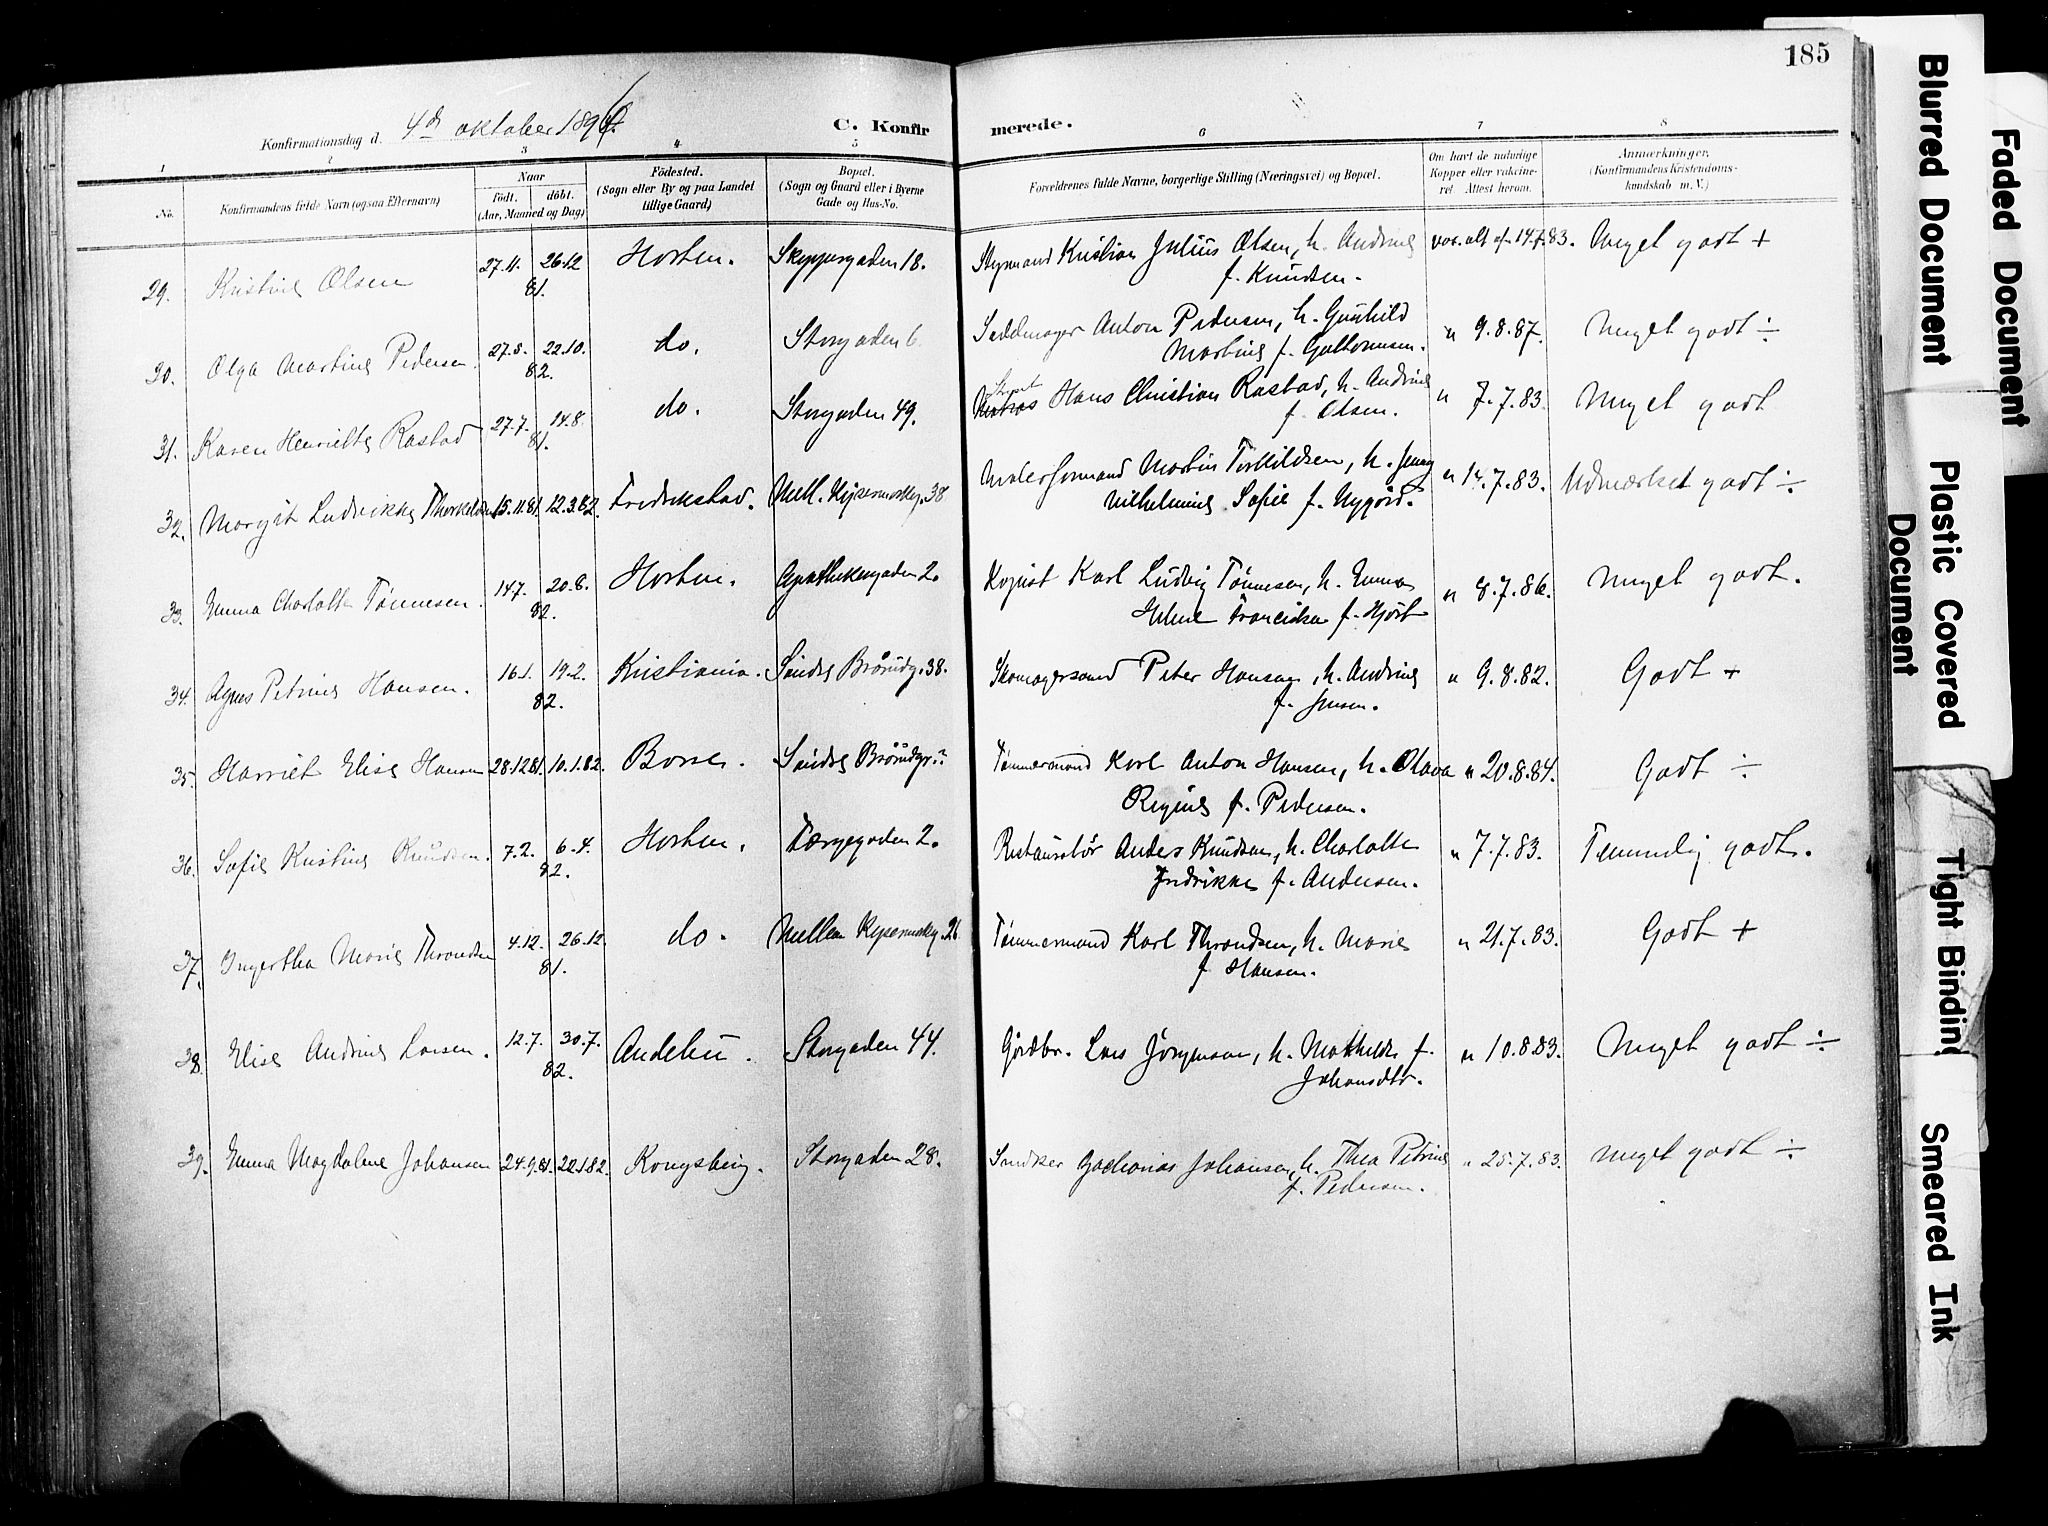 185
Konfirmationsdag d. 4de oktober 1896.
C. Konfirmerede.
1 2 3 4 5 6 7 8
No. Konfirmandens fulde Navn (ogsaa Efternavn)
Naar født. døbt. (Aar, Maaned og Dag)
Fødested. (Sogn eller By og paa Landet tillige Gaard)
Bopæl. (Sogn og Gaard eller i Byerne Gade og Hus-No.
Forældrenes fulde Navne, borgerlige Stilling (Næringsvei) og Bopæl.
Om havt de naturlige Kopper eller vakcineret. Attest herom.
Anmærkninger. (Konfirmandens Kristendomskundskab m. V.)
29. Kristine Olsen 27.11. 26.12 81. Horten. Skippergaden 18. Styrmand Kristian Julius Olsen, h. Andrine f. Knudsen. vac. att af 14.7.83. Meget godt +
30. Olga Martine Pedersen 27.8. 22.10. 82. do. Storgaden 6. Sadelmager Anton Pedersen, h. Gunhild Martine f. Guttormsen. " 9.8.87. Meget godt ÷
31. Karen Henriette Rastad 27.7. 14.8. 81. do. Storgaden 49. Hans Christian Rastad, h. Andrine f. Olsen. " 7.7.83. Meget godt
32. Margit Ludvikke Thorkildsen 15.11.81. 12.3.82. Fredrikstad. Mell. Keisermarkg. 38 Underformand Martin Torkildsen, h. Jenny Vilhelmine Sofie f. Nygård. " 14.7.83. Udmærket godt ÷
33. Emma Charlotte Tønnesen. 14.7. 20.8. 82. Horten. Apothekergaden 2. Kopist Karl Ludvig Tønnesen, h. Emma Helene Franciska f. Hjort " 8.7.86. Meget godt.
34. Agnes Petrine Hansen. 16.1. 19.2. 82. Kristiania. Søndre Brårudg. 38. Skomagersvend Peter Hansen, h. Andrine f. Jensen. " 9.8.82. Godt +
35. Harriet Elise Hansen 28.12.81. 10.1.82. Borre. Søndre Brårudgr. Tømmermand Karl Anton Hansen, h. Olava Regine f. Pedersen. " 20.8.84. Godt ÷
36. Sofie Kristine Knudsen. 7.2. 6.4. 82. Horten. Færgegaden 2. Restauratør Anders Knudsen, h. Charlotte Fredrikke f. Andersen. " 7.7.83. Temmelig godt.
37. Ingertha Marie Throndsen 4.12. 26.12. 81. do. Mellem Keisermarkg. 26 Tømmermand Karl Throndsen, h. Marie f. Hansen. " 21.7.83. Godt +
38. Elise Andrine Larsen. 12.7. 30.7. 82. Andebu. Storgaden 44. Gårdbr. Lars Jørgensen, h. Mathilde f. Johansdtr. " 10.8.83. Meget godt ÷
39. Emma Magdalene Johansen 24.9.81. 22.1.82. Kongsberg. Storgaden 28. Snedker Zacharias Johansen, h. Thea Petrine f. Pedersen. " 25.7.83. meget godt ÷
Blurred Document
Faded Document
Plastic Covered Document
Tight Binding
Smeared Ink